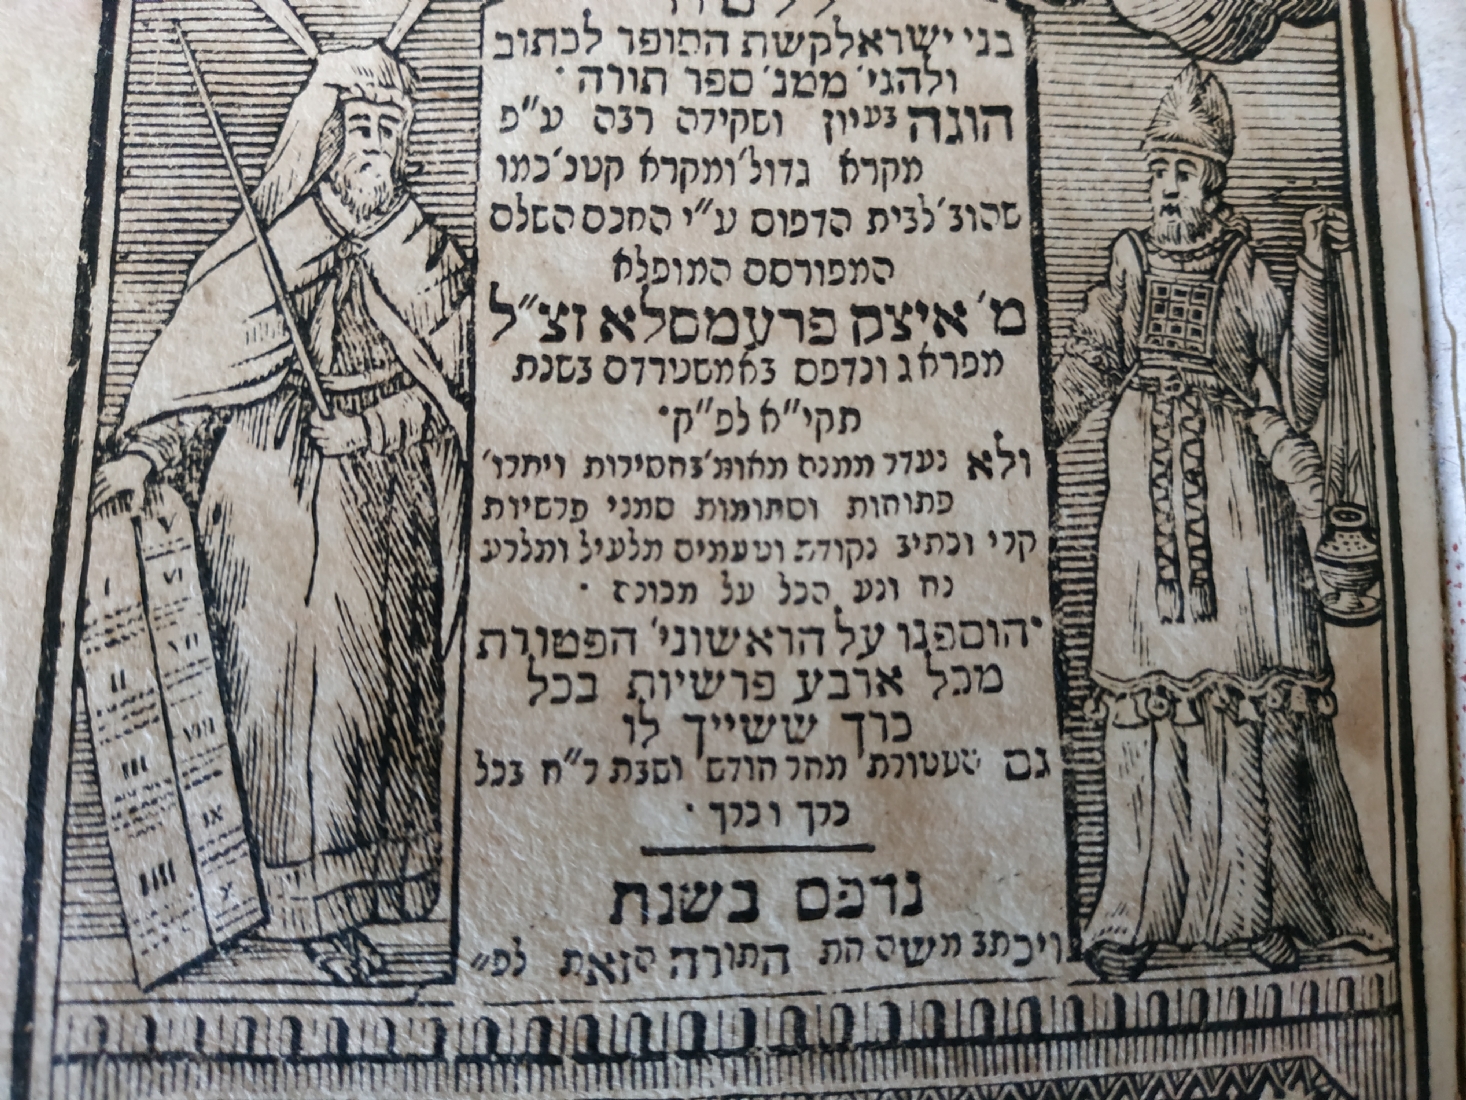 בני ישראל קשת הסופר לכתוב
ולהגי׳ ממנ׳ ספר תורה ·
הוגה בעיון ושקידה רבה ע״פ
מקרא גדול׳ ומקרא קטנ׳ כמו
שהוב׳ לבית הדפוס ע״י החכם השלם
המפורסם המופלא
מ׳ איצק פרעמסלא זצ״ל
מפראג ונדפס באמשטרדם בשנת
תקי״א לפ״ק·
ולא נעדר ממנה מאומ׳ בחסירות ויתרו׳
פתוחות וסתומות סמני פרשיות
קרי וכתיב נקודת וטעמים מלעיל ומלרע
נח ונע הכל על מכונה ·
והוספנו על הראשוני׳ הפטורת
מכל ארבע פרשיות בכל
כרך ששייך לו
גם הפטורת׳ מחר חודש׳ ושבת ר״ח בכל
כרך וכרך ·
נדפס בשנת
ויכתב משה את התורה הזאת לפ״
I
II
III
IIII
V
VI
VII
VIII
XI
X